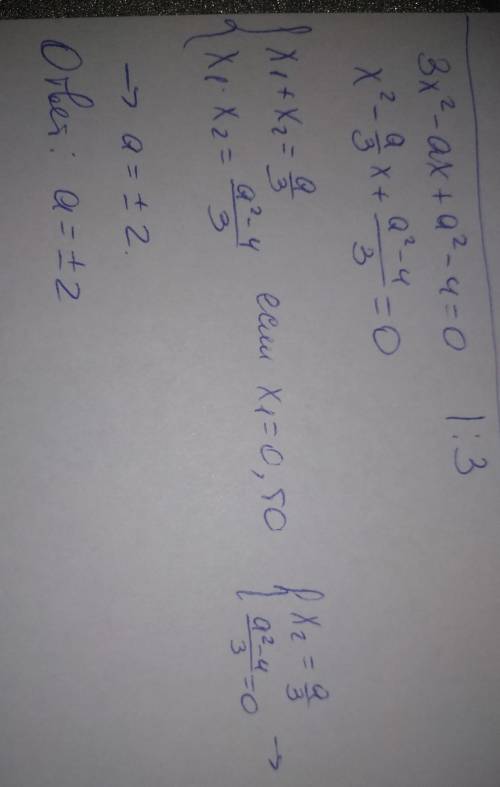 3x² - ax + a² - 4 = 0 |:3
x² - a/3 x + (a² - 4)/3 = 0
{ x₁ + x₂ = a/3
x₁ · x₂ = (a² - 4)/3 если x₁ = 0, то { x₂ = a/3
(a² - 4)/3 = 0 →
→ a = ± 2.
Ответ: a = ± 2